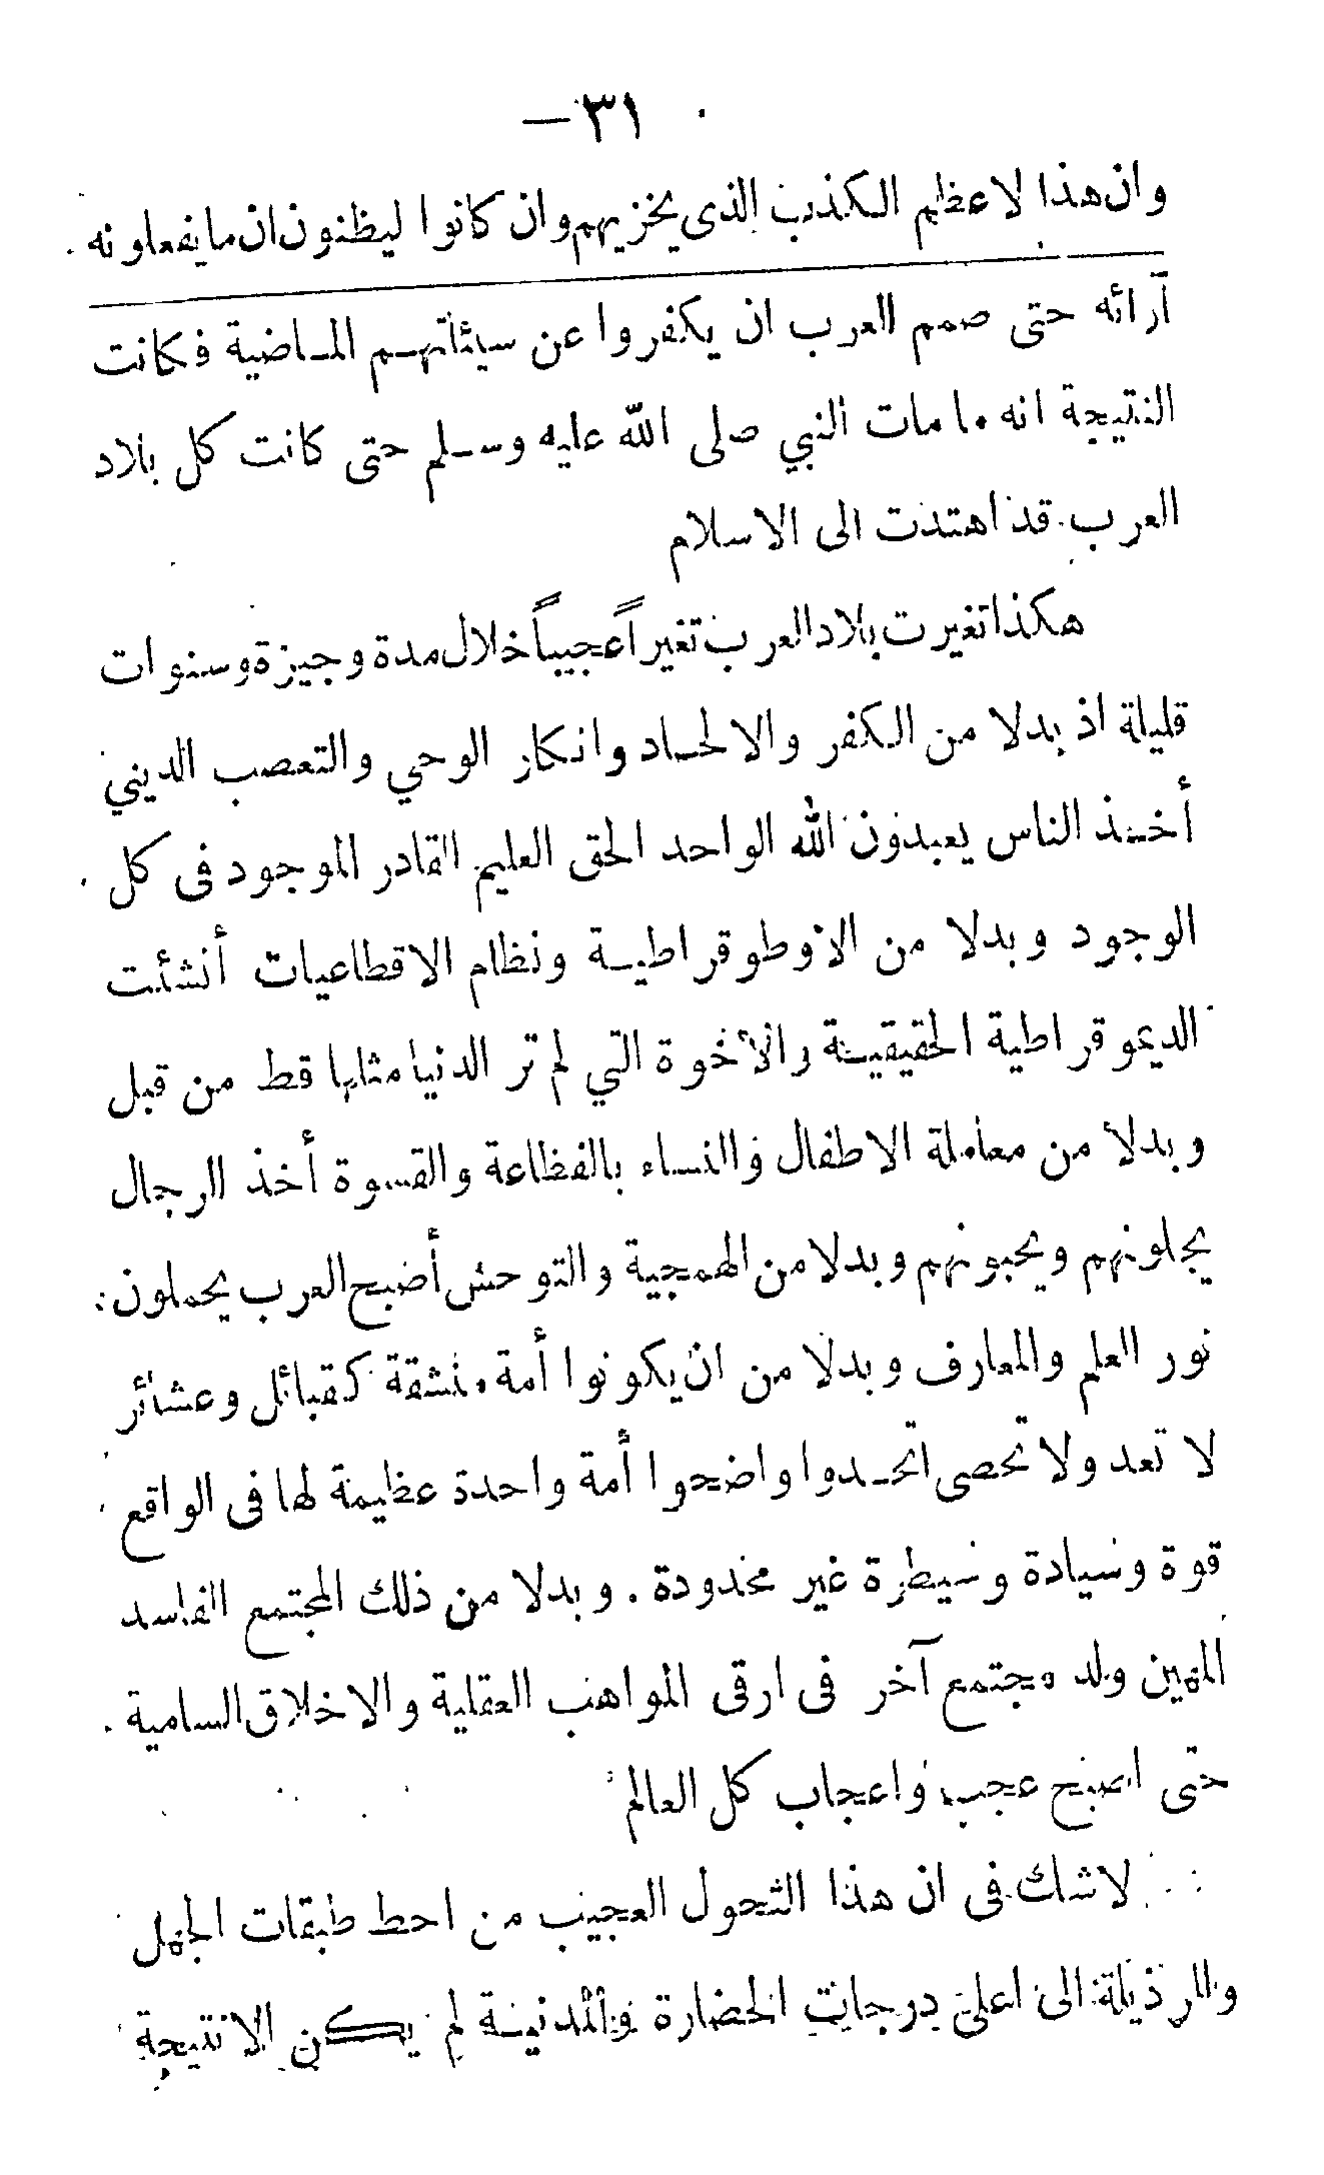 ٣١ —
وان هذا لاعظم الكذب الذى يخزيهم وان كانوا ليظنون ان ما يفعلونه
آرائه حتى صمم العرب ان يكفروا عن سيئاتهم الماضية فكانت
النتيجة انه ما مات النبي صلى الله عليه وسلم حتى كانت كل بلاد
العرب قد اهتدت الى الاسلام
هكذا تغيرت بلاد العرب تغيراً عجيباً خلال مدة وجيزة وسنوات
قليلة اذ بدلا من الكفر والالحاد وانكار الوحي والتعصب الديني
أخذ الناس يعبدون الله الواحد الحق العليم القادر الموجود فى كل
الوجود وبدلا من الاوطوقراطية ونظام الاقطاعيات أنشئت
الديموقراطية الحقيقية والأخوة التي لم تر الدنيا مثلها قط من قبل
وبدلا من معاملة الاطفال والنساء بالفظاعة والقسوة أخذ الرجال
يجلونهم ويحبونهم وبدلا من الهمجية والتوحش أصبح العرب يحملون
نور العلم والمعارف وبدلا من ان يكونوا أمة منشقة كقبائل وعشائر
لا تعد ولا تحصى اتحدوا واضحوا أمة واحدة عظيمة لها فى الواقع
قوة وسيادة وسيطرة غير محدودة . وبدلا من ذلك المجتمع الفاسد
المهين ولد مجتمع آخر فى ارقى المواهب العقلية والاخلاق السامية
حتى اصبح عجب واعجاب كل العالم
لاشك فى ان هذا التحول العجيب من احط طبقات الجهل
والرذيلة الى اعلى درجات الحضارة والمدنية لم يكن الا نتيجة